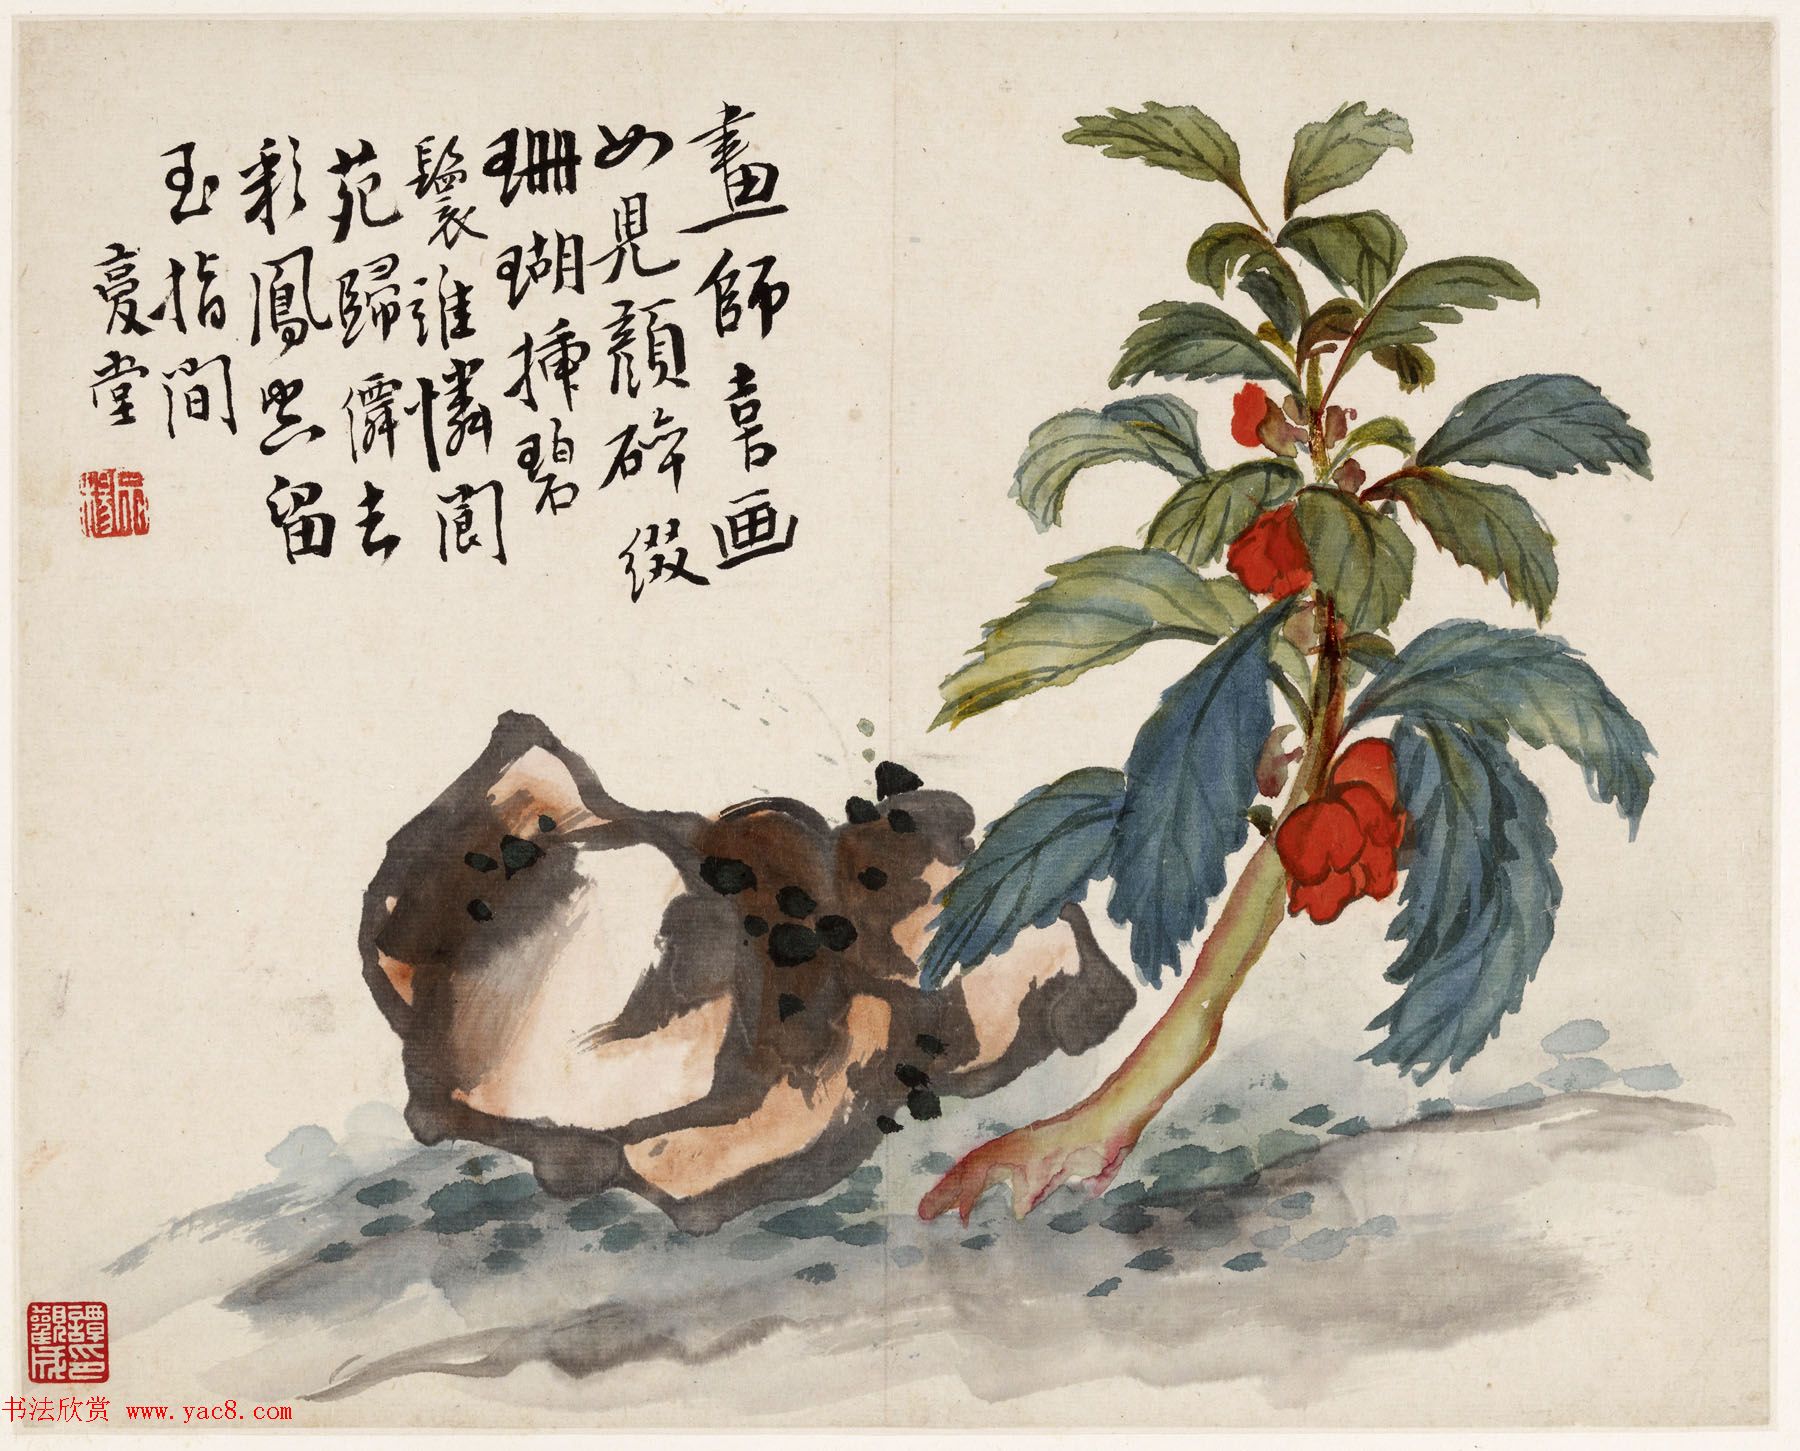 畫師喜画
女兒顏碎綴
珊瑚插碧
鬟誰憐閬
苑歸僊去
彩鳳空留
玉指間
堂
譚觀成印
书法欣赏 www.yac8.com